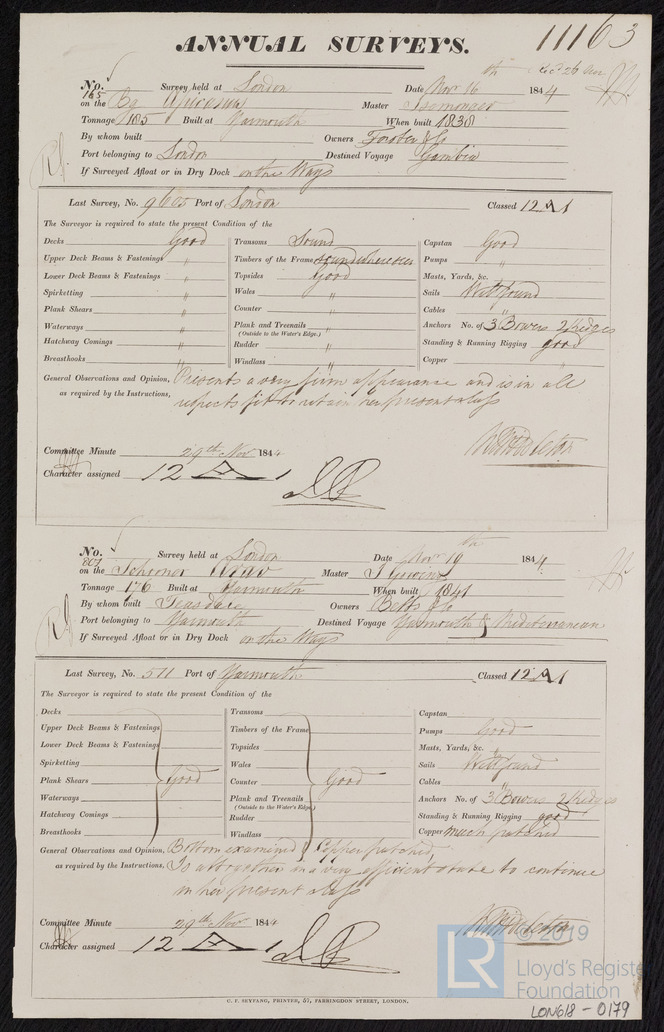 11163
ANNUAL SURVEYS.
No. 165 Survey held at London Date Novr 16th 1844
on the Bg Master Isemonger
Tonnage 185 Built at Yarmouth When built 1838
By whom built Owners Forster & Co
Port belonging to London Destined Voyage Gambia
If Surveyed Afloat or in Dry Dock on the Ways
Last Survey, No. Port of London Classed 12 A 1
The Surveyor is required to state the present Condition of the
Decks Good Transoms Sound Capstan Good
Upper Deck Beams & Fastenings " Timbers of the Frame Pumps "
Lower Deck Beams & Fastenings " Topsides Good Masts, Yards, &c.
Spirketting " Wales " Sails Well found
Plank Shears " Counter " Cables "
Waterways " Plank and Treenails " Anchors No. of 3 Bowers 2 Kedges
(Outside to the Water's Edge.)
Hatchway Comings " Rudder " Standing & Running Rigging good
Breasthooks " Windlass " Copper "
General Observations and Opinion, Presents a very firm appearance and is in all
as required by the Instructions, respects fit to retain her present class
Committee Minute 29th Nov 1844
Character assigned 12 A 1
No. 807 Survey held at London Date Novr 19th 1844
on the Schooner Master
Tonnage 176 Built at Yarmouth When built 1841
By whom built Teasdale Owners Betts & Co
Port belonging to Yarmouth Destined Voyage Yarmouth & Mediterranean
If Surveyed Afloat or in Dry Dock on the Ways
Last Survey, No. 511 Port of Yarmouth Classed 12 A 1
The Surveyor is required to state the present Condition of the
Decks Transoms Capstan
Upper Deck Beams & Fastenings Timbers of the Frame Pumps Good
Lower Deck Beams & Fastenings Topsides Masts, Yards, &c.
Spirketting Wales Sails Well found
Plank Shears Good Counter Good Cables "
Waterways Plank and Treenails Anchors No. of 3 Bowers 2 Kedges
(Outside to the Water's Edge.)
Hatchway Comings Rudder Standing & Running Rigging good
Breasthooks Windlass Copper much patched
General Observations and Opinion, Bottom examined & Copper patched,
as required by the Instructions, Is altogether in a very efficient state to continue
in her present class
Committee Minute 29th Nov 1844
Character assigned 12 A 1
C. F. SEYFANG, PRINTER, 57, FARRINGDON STREET, LONDON.
LR © 2019
Lloyd's Register
Foundation
LON618-0179